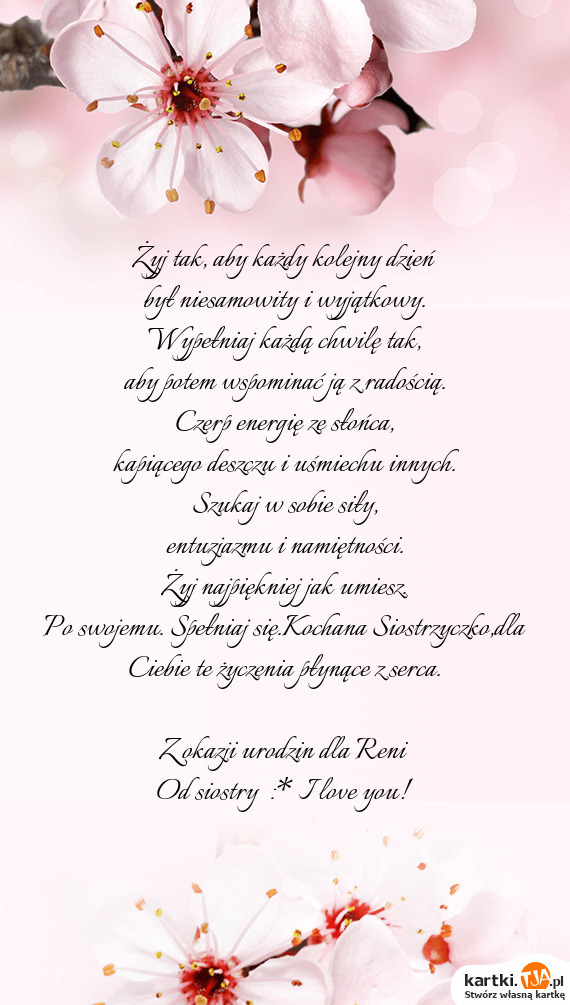 Żyj tak, aby każdy kolejny dzień
był niesamowity i wyjątkowy.
Wypełniaj każdą chwilę tak,
aby potem wspominać ją z radością.
Czerp energię ze słońca,
kapiącego deszczu i uśmiechu innych.
Szukaj w sobie siły,
entuzjazmu i namiętności.
Żyj najpiękniej jak umiesz.
Po swojemu. Spełniaj się.Kochana Siostrzyczko,dla
Ciebie te życzenia płynące z serca.
Z okazji urodzin dla Reni
Od siostry :* I love you!
kartki.TJA.pl
Stwórz własną kartkę